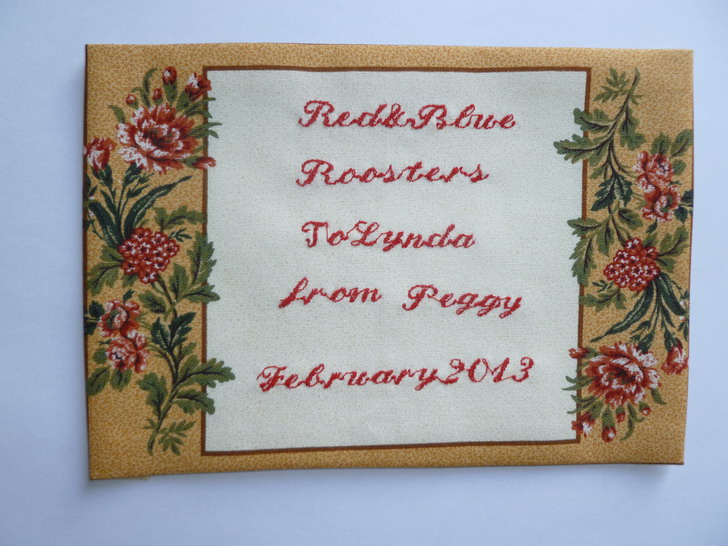 Red&Blue
Roosters
ToLynda
from Peggy
February2013